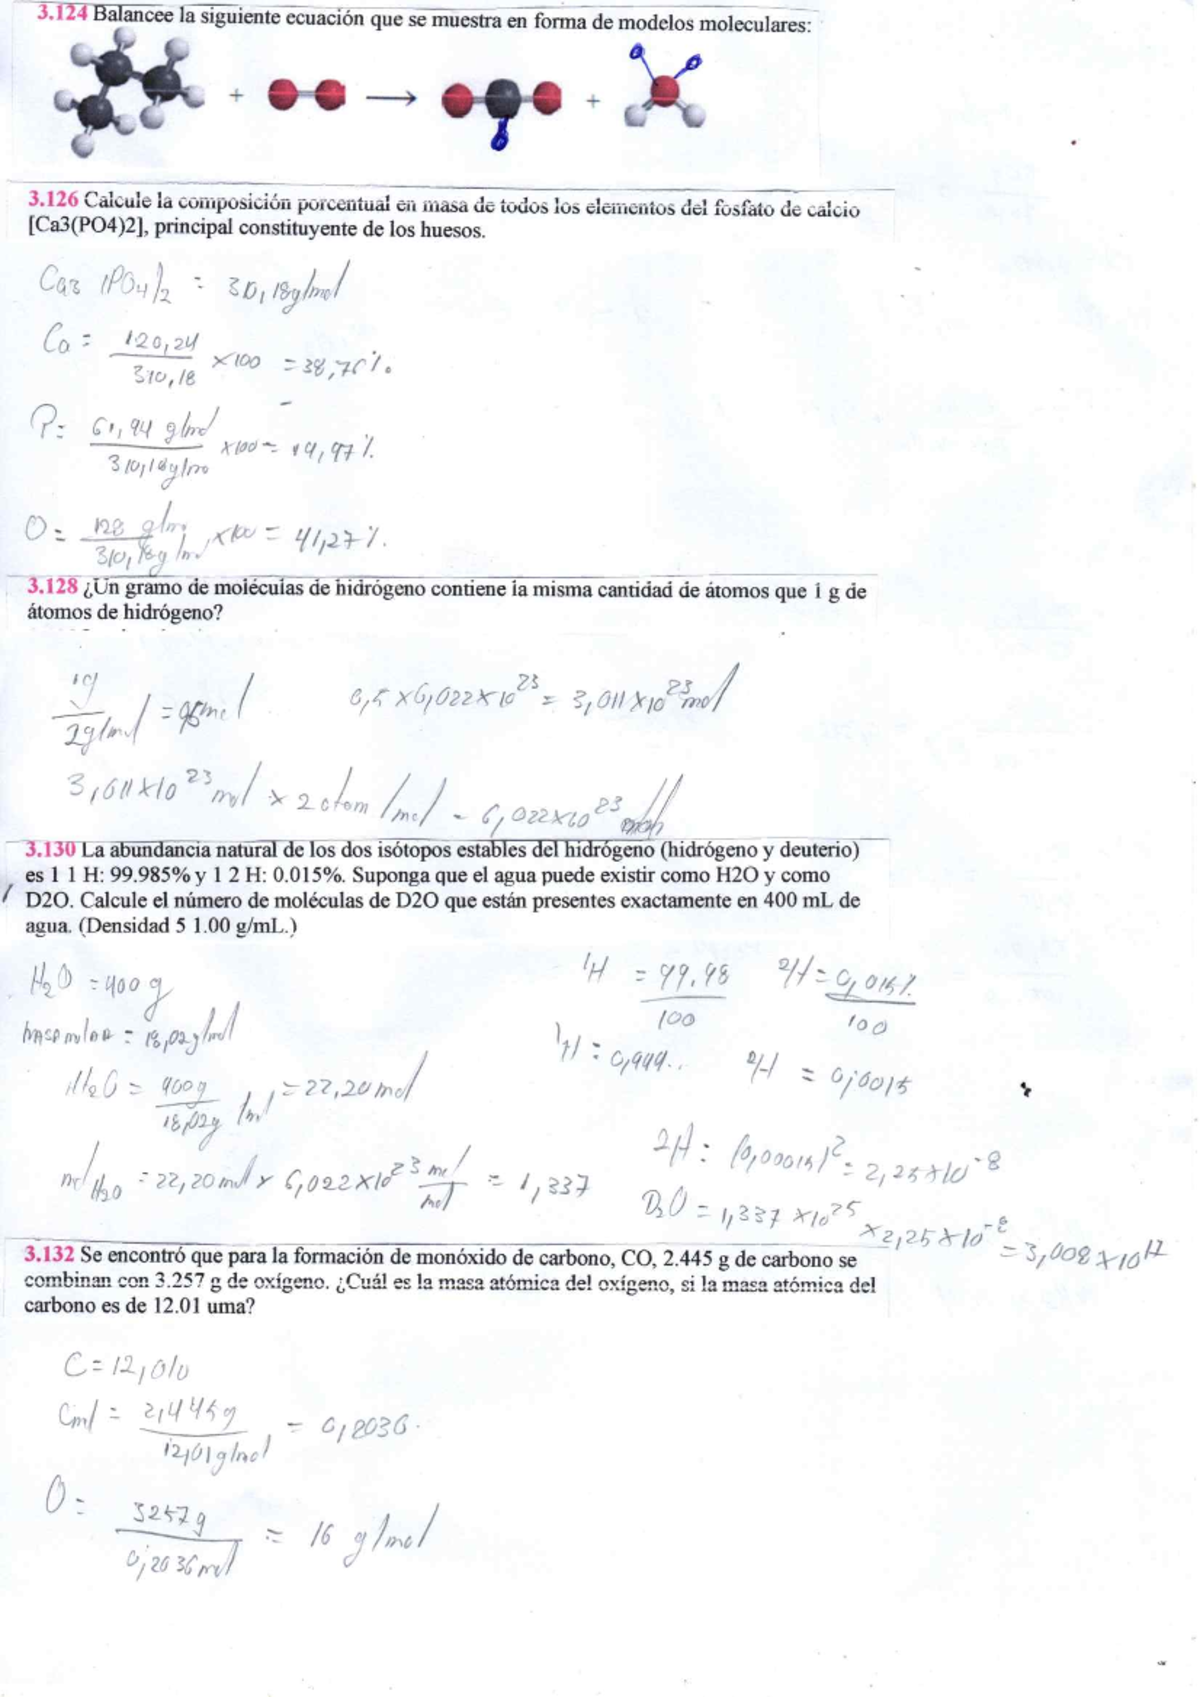 3.124 Balancee la siguiente ecuación que se muestra en forma de modelos moleculares:
+ → +
3.126 Calcule la composición porcentual en masa de todos los elementos del fosfato de calcio
[Ca3(PO4)2], principal constituyente de los huesos.
Ca3 (PO4)2 = 310,18g/mol
Ca = 120,24 / 310,18 x100 = 38,76%.
P = 61,94 g/mol / 310,18g/mo x100 = 19,97%.
O = 128 g/mo / 310,18g/mo x100 = 41,27%.
3.128 ¿Un gramo de moléculas de hidrógeno contiene la misma cantidad de átomos que 1 g de
átomos de hidrógeno?
1g / 2g/mol = 0,5mol 0,5 x 6,022 x 10^23 = 3,011 x 10^23 mol
3,011 x 10^23 mol x 2 atom/mol = 6,022x10^23
3.130 La abundancia natural de los dos isótopos estables del hidrógeno (hidrógeno y deuterio)
es 1 1 H: 99.985% y 1 2 H: 0.015%. Suponga que el agua puede existir como H2O y como
D2O. Calcule el número de moléculas de D2O que están presentes exactamente en 400 mL de
agua. (Densidad 5 1.00 g/mL.)
H2O = 400 g
masa molar = 18,02g/mol
H2O = 400g / 18,02g/mol = 22,20 mol
mol H2O = 22,20 mol x 6,022 x 10^23 mol/mol = 1,337
1H = 99.98 / 100 2H = 0,015% / 100
1H : 0,999.. 2H = 0,0015
2H : (0,00015)^2 = 2,25 x 10^-8
D2O = 1,337 x 10^25 x 2,25 x 10^-8 = 3,008 x 10^17
3.132 Se encontró que para la formación de monóxido de carbono, CO, 2.445 g de carbono se
combinan con 3.257 g de oxígeno. ¿Cuál es la masa atómica del oxígeno, si la masa atómica del
carbono es de 12.01 uma?
C = 12,010
Cml = 2,445g / 12,01g/mol = 0,2036.
O = 3257g / 0,2036mol = 16 g/mol